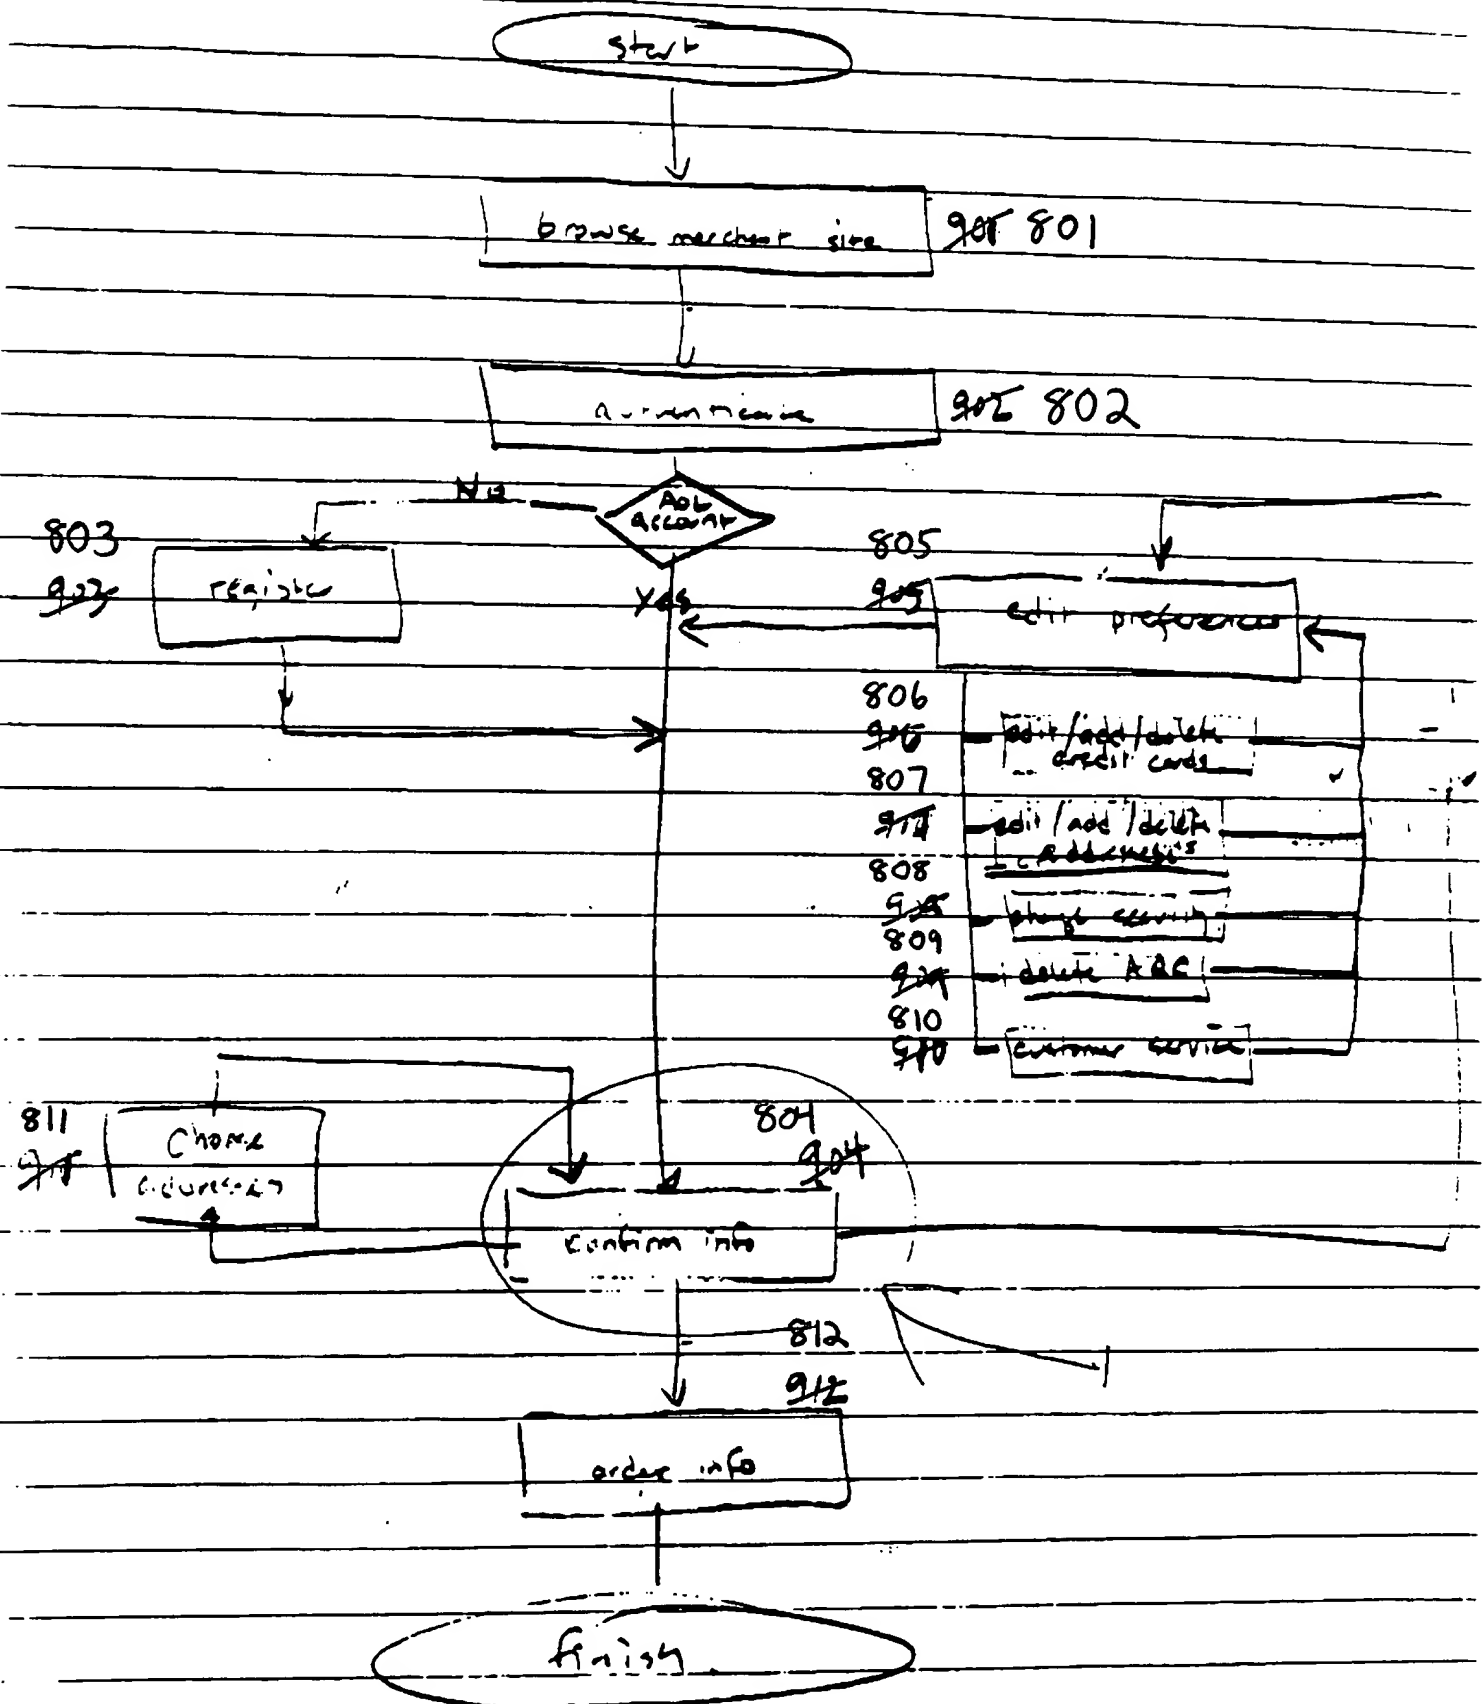 start
browse merchant site
901 801
authenticate
902 802
No
AOL
account
803
903
register
Yes
805
905
edit preferences
806
906
edit/add/delete
credit cards
807
edit/add/delete
808
809
909
delete
810
910
customer service
811
804
904
confirm info
812
912
order info
finish